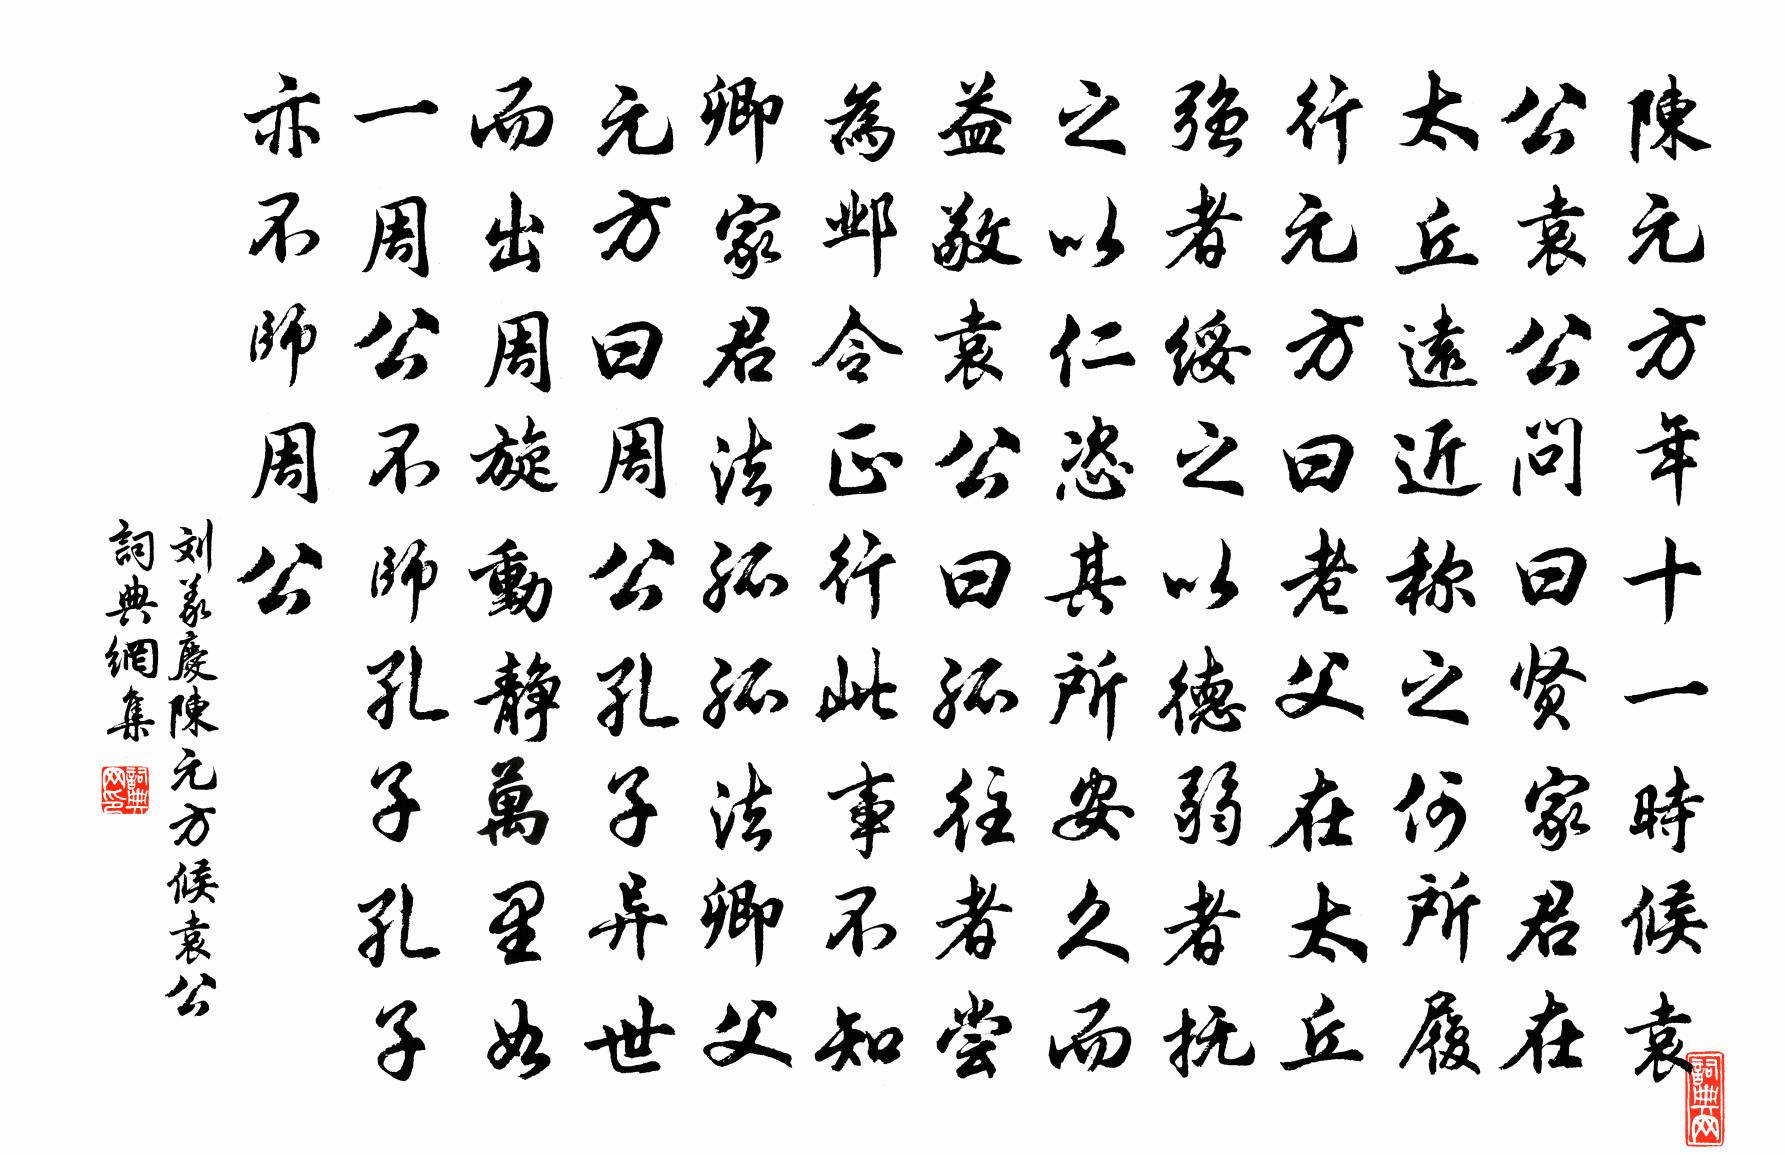 陳元方年十一時候袁
公袁公問曰贤家君在
太丘遠近称之何所履
行元方曰老父在太丘
强者绥之以德弱者抚
之以仁恣其所安久而
益敬袁公曰孤往者尝
為邺令正行此事不知
卿家君法孤孤法卿父
元方曰周公孔子异世
而出周旋動静萬里如
一周公不師孔子孔子
亦不師周公
刘義慶陳元方候袁公
詞典網集
詞典网印
詞典网